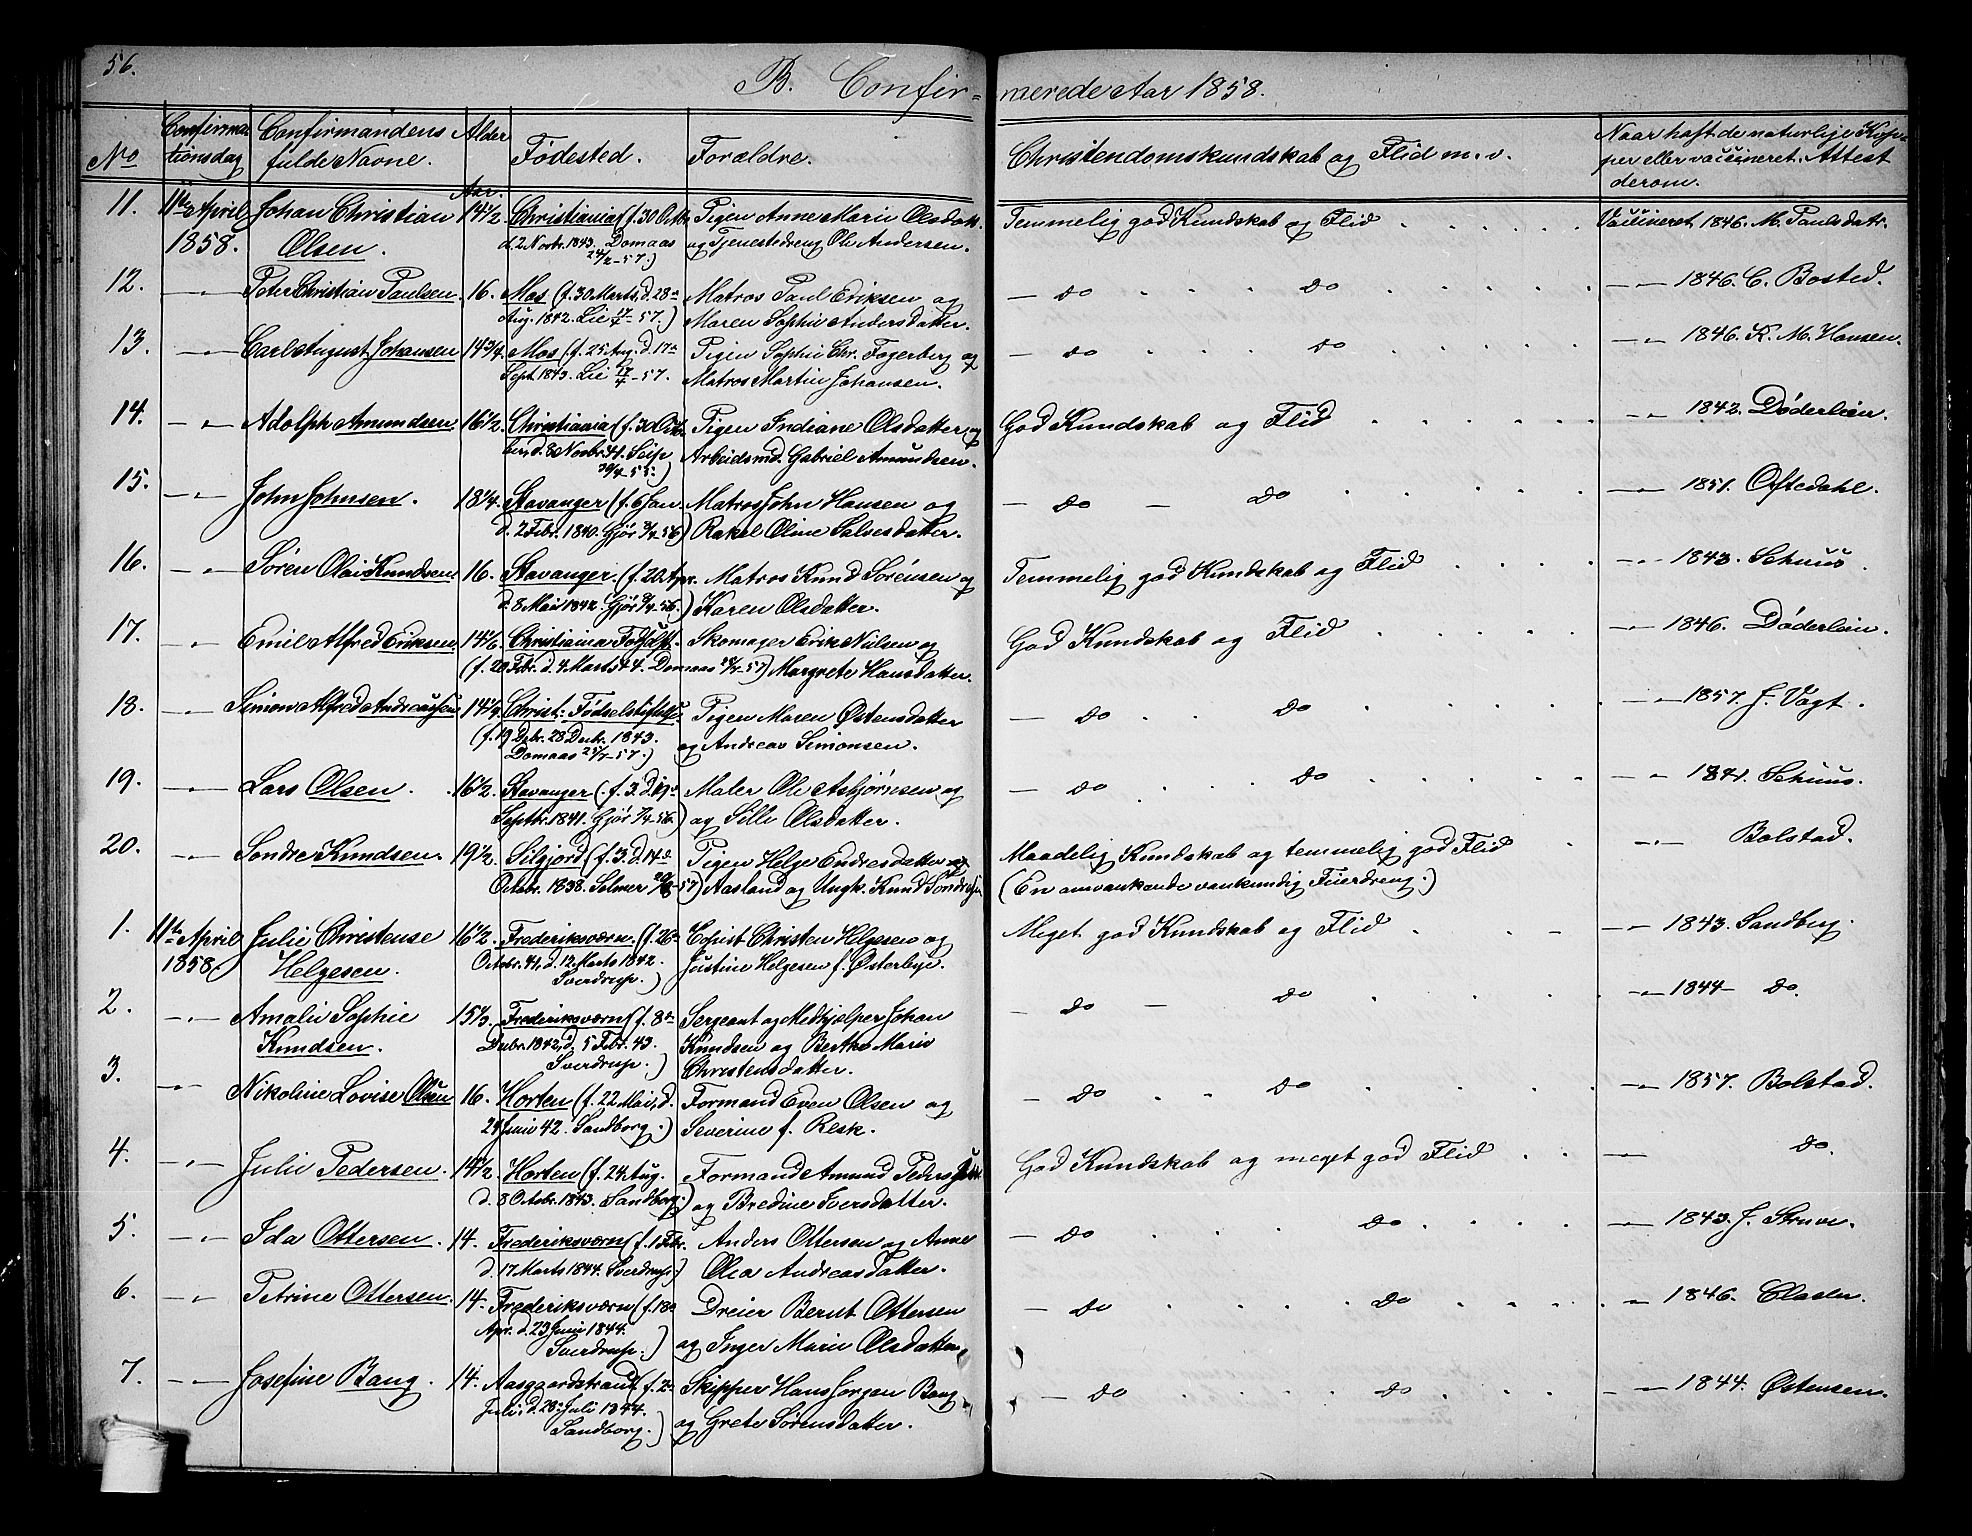 56.
B. Confir- merede Aar 1858.
No Confirmationsdag Confirmandens fulde Navne. Alder Aar. Fødested. Forældre. Christendomskundskab og Flid m. v. Naar haft de naturlige Kopper eller vaccineret. Attest derom.
11. 11te April Johan Christian 14 1/2 Christiania (f. 30 Octbr. Pigen Anne Marie Olsdatt. Temmelig god Kundskab og Flid Vaccineret 1846. M. Paulsdatr.
1858. Olsen. d. 2 Novbr. 1843. Domaas og Tjenestedreng Ole Andersen.
24/2-57.)
12. — " — Peter Christian Paulsen. 16. Mos (f. 30 Marts, d. 28de Matros Paul Eriksen og — do do — " — 1846. C. Bosted.
Aug. 1842. Lie 17/4-57.) Maren Sophie Andersdatter.
13. — " — Carl August Johansen 14 3/4 Mos (f. 25 Aug. d. 17de Pigen Sophie Chr. Fagerberg og — do do — " — 1846. K. M. Hansen.
Sept. 1843. Lie 17/4-57. Matros Martin Johansen.
14. — " — Adolph Amundsen 16 1/2 Christiania (f. 30 Octo- Pigen Indiane Olsdatter og God Kundskab og Flid — " — 1842. Døderlein.
ber, d. 8 Novbr. 41. Seip Arbeidsmd. Gabriel Amundsen.
30/4-55.)
15. — " — John Johnsen. 18 1/4 Stavanger (f. 6 Jan. Matros John Hansen og — do — do — " — 1851. Oftedahl.
d. 2 Febr. 1840. Gjør 3/4-56) Rakel Oline Salvesdatter.
16. — " — Søren Olai Knudsen 16. Stavanger. (f. 20 Apr. Matros Knud Sørensen og Temmelig god Kundskab og Flid — " — 1843. Schuus.
d. 8 Mai 1842. Gjør 3/4-56.) Karen Olsdatter.
17. — " — Emil Alfred Eriksen 14 1/6 Christiania Fødselst. Skomager Erik Nilsen og God Kundskab og Flid — " — 1846. Døderlein.
(f. 20 Febr. d. 4 Marts 44. Domaas 28/7-57) Margrete Hansdatter.
18. — " — Simon Alfred Andreassen 14 1/4 Christ: Fødselstiftelse Pigen Maren Østensdatter — do do — " — 1857. J. Vogt.
(f. 19 Debr. 28 Decbr. 1843. og Andreas Simonsen.
Domaas 25/7-57.)
19. — " — Lars Olsen. 16 1/2 Stavanger (f. 3. d. 19de Maler Ole Asbjørnsen og — do do — " — 1841. Schuus.
Septbr. 1841. Gjør 3/4-56.) og Sille Olsdatter.
20. — " — Sondre Knudsen. 19 1/2 Siljord (f. 3. d. 14de Pigen Helge Endresdatter Maadelig Kundskab og temmelig god Flid — " — Bolstad.
Octobr. 1838. Selmer 20/8-57) Aasland og Ungk. Knud Sondresen (En omvankende vankundig Fiierdreng.)
1. 11te April Julie Christense 16 1/2 Frederiksværn. (f. 26de Copist Christen Helgesen og Meget god Kundskab og Flid — " — 1843. Sandberg.
1858. Helgesen. Octobr. 41, d. 12 Marts 1842. Justine Helgesen f. Østerbye.
Sverdrup.)
2. — " — Amalie Sophie 15 1/3 Frederiksværn (f. 8de Sergeant og Medhjælper Johan — do — do — " — 1844 — do.
Knudsen. Decbr. 1842, d. 5 Febr. 43. Knudsen og Berthe Marie
Sverdrup.) Christensdatter.
3. — " — Nikoline Lovise Olsen 16. Horten (f. 22 Mai, d. Formand Even Olsen og — do do — " — 1857. Bolstad.
24 Juni 42. Sandborg.) Severine f. Resk.
4. — " — Julie Pedersen. 14 1/2 Horten (f. 24 Aug. Formand Amund Peders God Kundskab og meget god Flid — do.
d. 8 Octobr. 1843. Sandborg.) og Bredine Iversdatter.
5. — " — Ida Ottersen. 14. Frederiksværn (f. 1 Febr. Anders Ottersen og Anne — do do — " — 1843. J. Struve.
d. 17 Marts 1844. Sverdrup.) Olea Andreasdatter.
6. — " — Petrine Ottersen. 14. Frederiksværn (f. 18de Dreier Bernt Ottersen — do do — " — 1846. Clasen.
Apr. d. 23 Juni 1844. og Inger Marie Olsdatter.
Sverdrup.)
7. — " — Josefine Bang. 14. Aasgaardstrand (f. 2de Skipper Hans Jørgen Bang — do do — " — 1844. Østensen.
Juli. d. 28 Juli 1844. og Grete Sørensdatter.
Sandborg.)